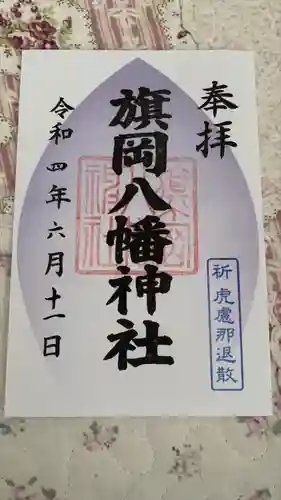 奉拝
旗岡八幡神社
令和四年六月十一日
祈虎慮那退散